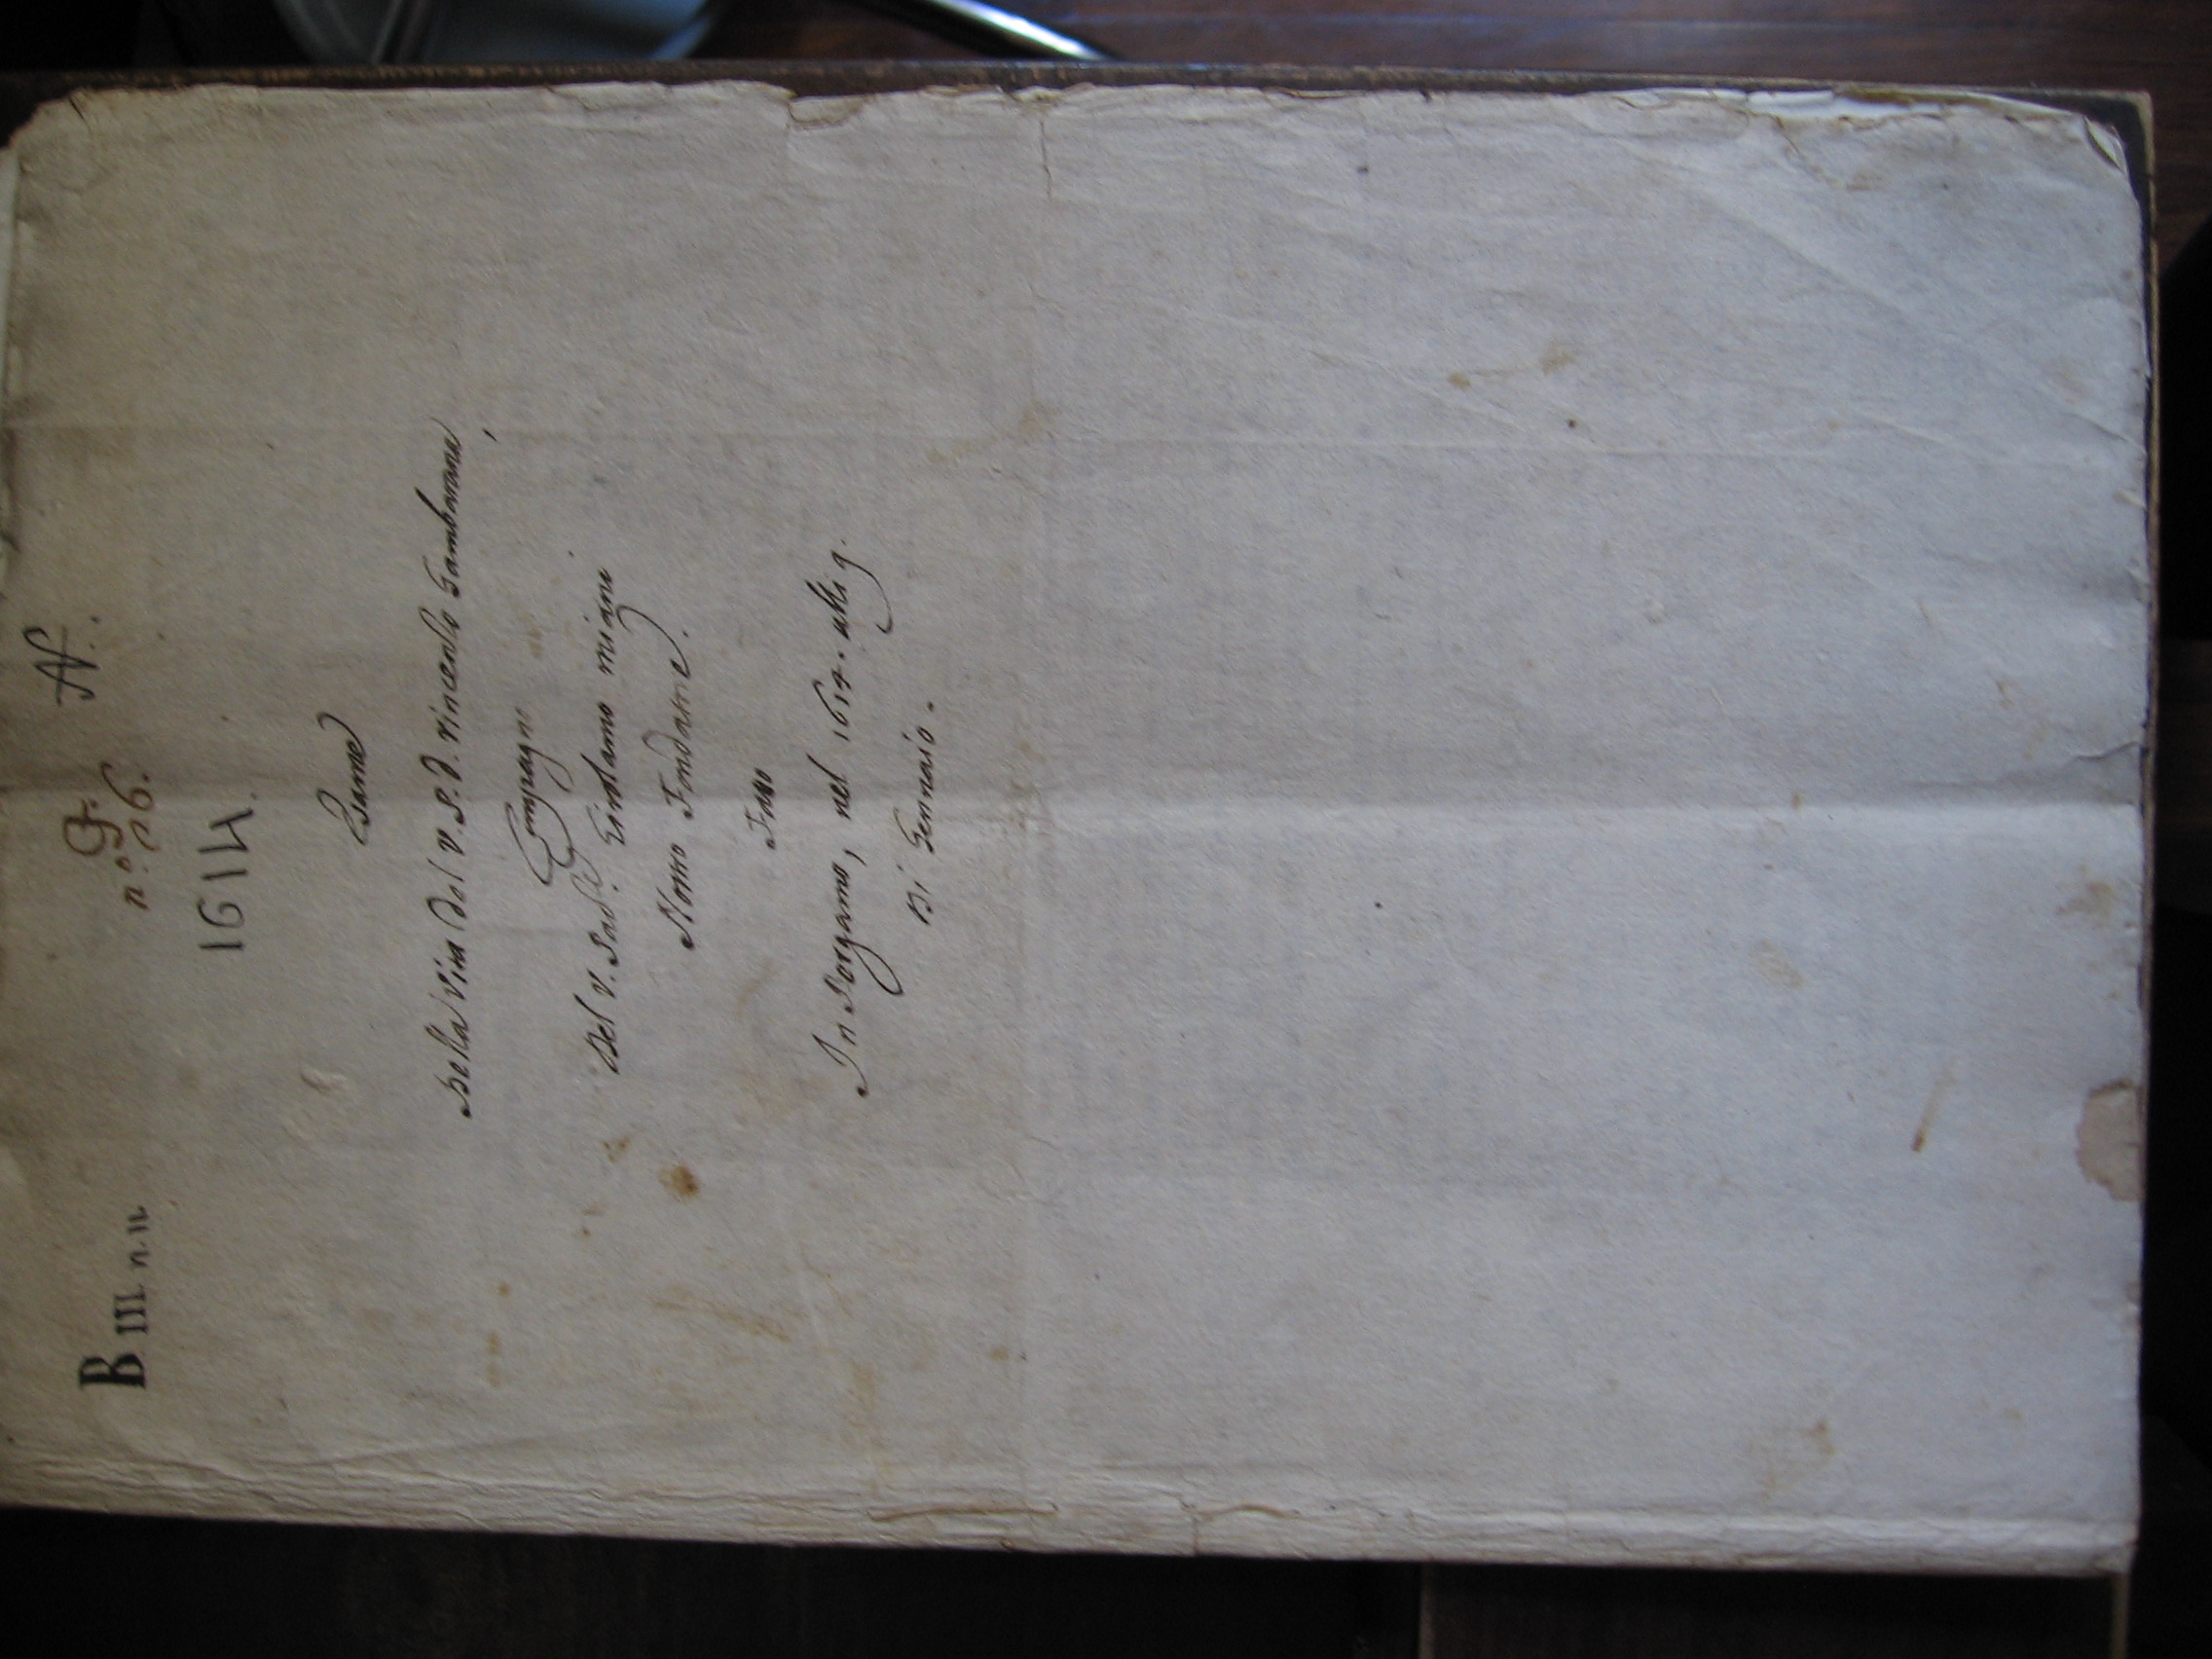 B III. n. 11.
G. N.
n.° 26.
1614.
Esame
Della vita del V. P. D. Vincenzo Gambarana
Compagno
Del V. Pad.e Girolamo Miani
Nostro Fondatore.
Fatto
In Bergamo, nel 1614. alli 9.
Di Gennaio.